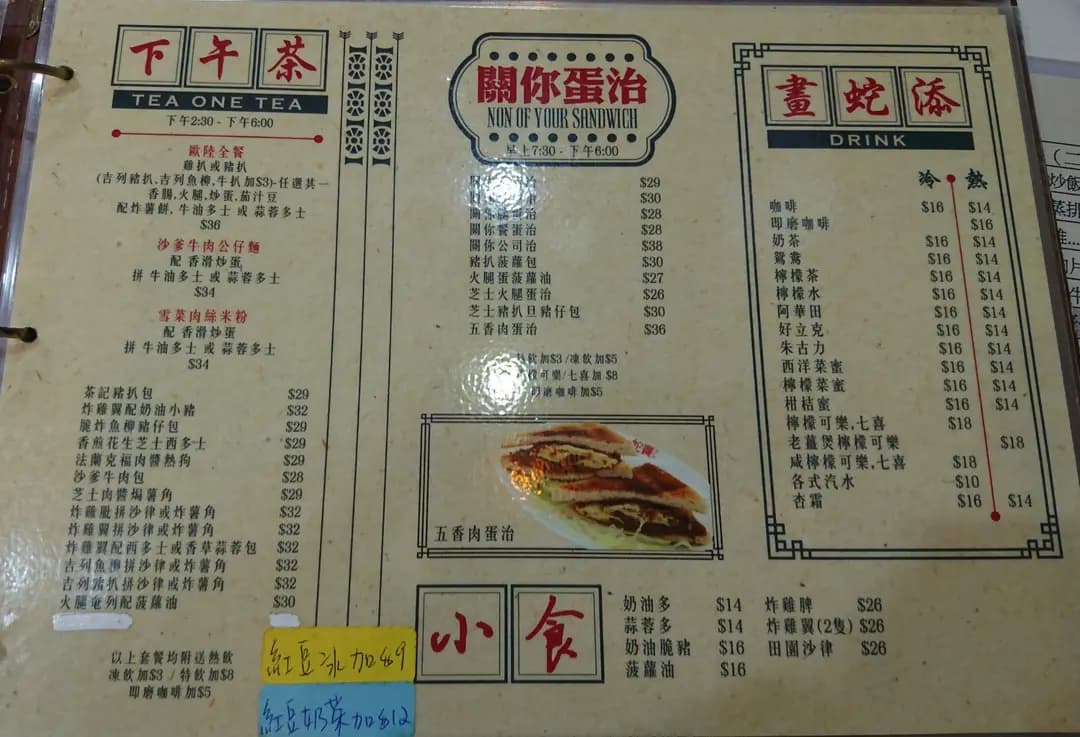 下午茶
TEA ONE TEA
下午2:30 - 下午6:00
歐陸全餐
雞扒或豬扒
(吉列豬扒,吉列魚柳,牛扒加$3)-任選其一
香腸,火腿,炒蛋,茄汁豆
配炸薯餅, 牛油多士 或 蒜蓉多士
$36
沙爹牛肉公仔麵
配 香滑炒蛋
拼 牛油多士 或 蒜蓉多士
$34
雪菜肉絲米粉
配 香滑炒蛋
拼 牛油多士 或 蒜蓉多士
$34
茶記豬扒包 $29
炸雞翼配奶油小豬 $32
脆炸魚柳豬仔包 $29
香煎花生芝士西多士 $29
法蘭克福肉醬熱狗 $29
沙爹牛肉包 $28
芝士肉醬焗薯角 $29
炸雞髀拼沙律或炸薯角 $32
炸雞翼拼沙律或炸薯角 $32
炸雞翼配西多士或香草蒜蓉包 $32
吉列魚柳拼沙律或炸薯角 $32
吉列豬扒拼沙律或炸薯角 $32
火腿奄列配菠蘿油 $30
以上套餐均附送熱飲
凍飲加$3 / 特飲加$8
即磨咖啡加$5
紅豆冰加$9
紅豆奶茶加$12
關你蛋治
NON OF YOUR SANDWICH
早上7:30 - 下午6:00
$29
$30
關你 蛋治 $28
關你餐蛋治 $28
關你公司治 $38
豬扒菠蘿包 $30
火腿蛋菠蘿油 $27
芝士火腿蛋治 $26
芝士豬扒旦豬仔包 $30
五香肉蛋治 $36
飲加$3 /凍飲加$5
可樂/七喜加 $8
即磨咖啡加$5
五香肉蛋治
小食
奶油多 $14
蒜蓉多 $14
奶油脆豬 $16
菠蘿油 $16
炸雞脾 $26
炸雞翼(2隻) $26
田園沙律 $26
畫蛇添
DRINK
冷 熱
咖啡 $16 $14
即磨咖啡 $16
奶茶 $16 $14
鴛鴦 $16 $14
檸檬茶 $16 $14
檸檬水 $16 $14
阿華田 $16 $14
好立克 $16 $14
朱古力 $16 $14
西洋菜蜜 $16 $14
檸檬菜蜜 $16 $14
柑桔蜜 $16 $14
檸檬可樂,七喜 $18
老薑煲檸檬可樂 $18
咸檸檬可樂,七喜 $18
各式汽水 $10
杏霜 $16 $14